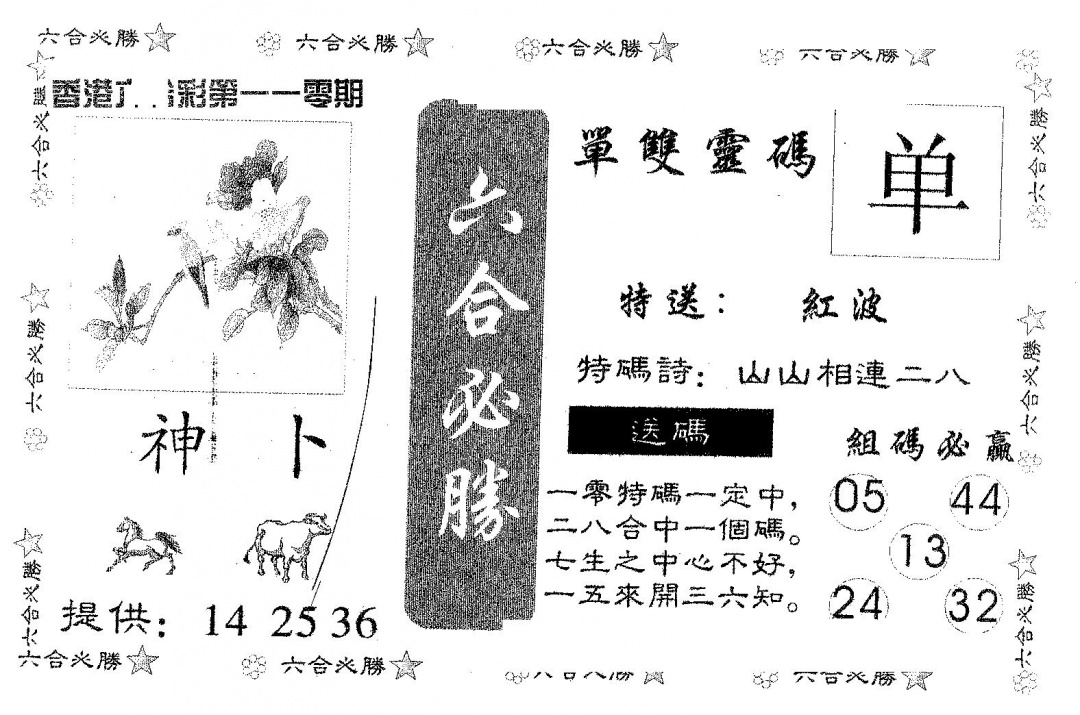 六合必勝
六合必勝
六合必勝
六合必勝
香港 彩第一一零期
神卜
提供：14 25 36
六合必勝
單雙靈碼
单
特送：紅波
特碼詩：山山相連二八
送碼
一零特碼一定中，
二八合中一個碼。
七生之中心不好，
一五來開三六知。
組碼必贏
05 44
13
24 32
六合必勝
六合必勝
六合必勝
六合必勝
六合必勝
六合必勝
六合必勝
六合必勝
六合必勝